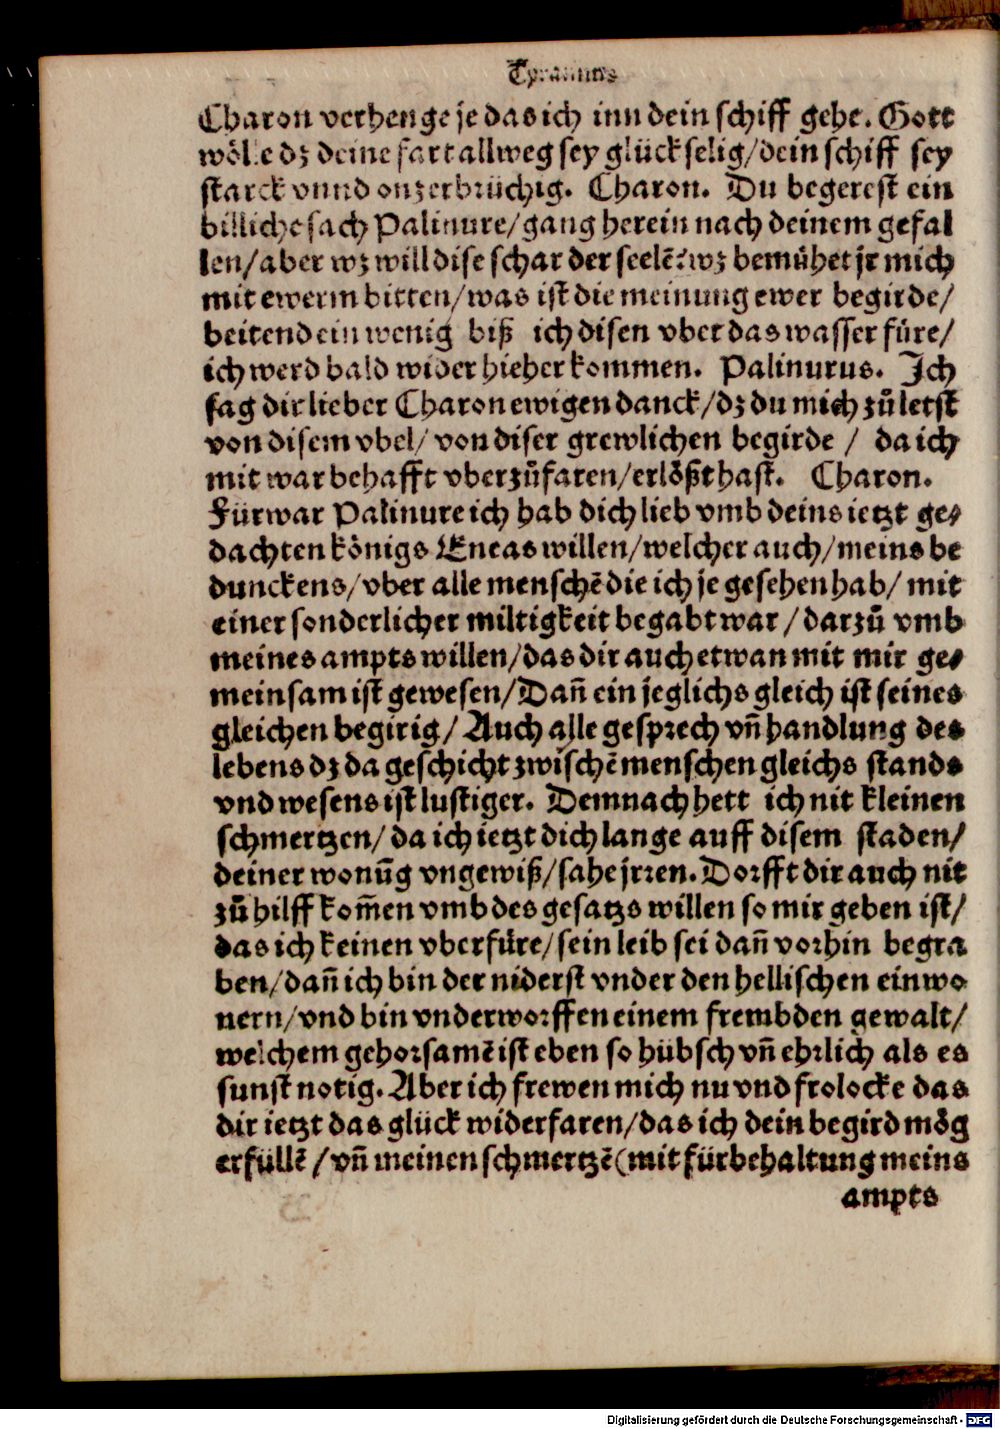 Tyrannus
Charon verhenge je das ich inn dein schiff gehe. Gott
wölle dz deine fart allweg sey glückselig/dein schiff sey
starck vnnd onzerbrüchig. Charon. Du begerest ein
billiche sach Palinure/gang herein nach deinem gefal
len/aber wz will dise schar der seelē? wz bemühet jr mich
mit ewerm bitten/was ist die meinung ewer begirde/
beitend ein wenig biß ich disen vber das wasser füre/
ich werd bald wider hieher kommen. Palinurus. Ich
sag dir lieber Charon ewigen danck/dz du mich zů letst
von disem vbel/von diser grewlichen begirde / da ich
mit war behafft vberzůfaren/erlößt hast. Charon.
Fürwar Palinure ich hab dich lieb vmb deins ietzt ge⸗
dachten königs Eneas willen/welcher auch/meins be
dunckens/vber alle menschē die ich je gesehen hab/ mit
einer sonderlicher miltigkeit begabt war/darzů vmb
meines ampts willen/das dir auch etwan mit mir ge⸗
meinsam ist gewesen/Dañ ein jeglichs gleich ist seines
gleichen begirig/ Auch alle gesprech vñ handlung des
lebens dz da geschicht zwischē menschen gleichs stands
vnd wesens ist lustiger. Demnach hett ich nit kleinen
schmertzen/da ich ietzt dich lange auff disem staden/
deiner wonūg vngewiß/sahe jrren. Dorfft dir auch nit
zů hilff kom̄en vmb des gesatzs willen so mir geben ist/
das ich keinen vberfüre/sein leib sei dañ vorhin begra
ben/dañ ich bin der niderst vnder den hellischen einwo
nern/vnd bin vnderworffen einem frembden gewalt/
welchem gehorsamē ist eben so hübsch vñ ehrlich als es
sunst notig. Aber ich frewen mich nu vnd frolocke das
dir ietzt das glück widerfaren/das ich dein begird mög
erfüllē/vñ meinen schmertzē (mit fürbehaltung meins
ampts
Digitalisierung gefördert durch die Deutsche Forschungsgemeinschaft - DFG